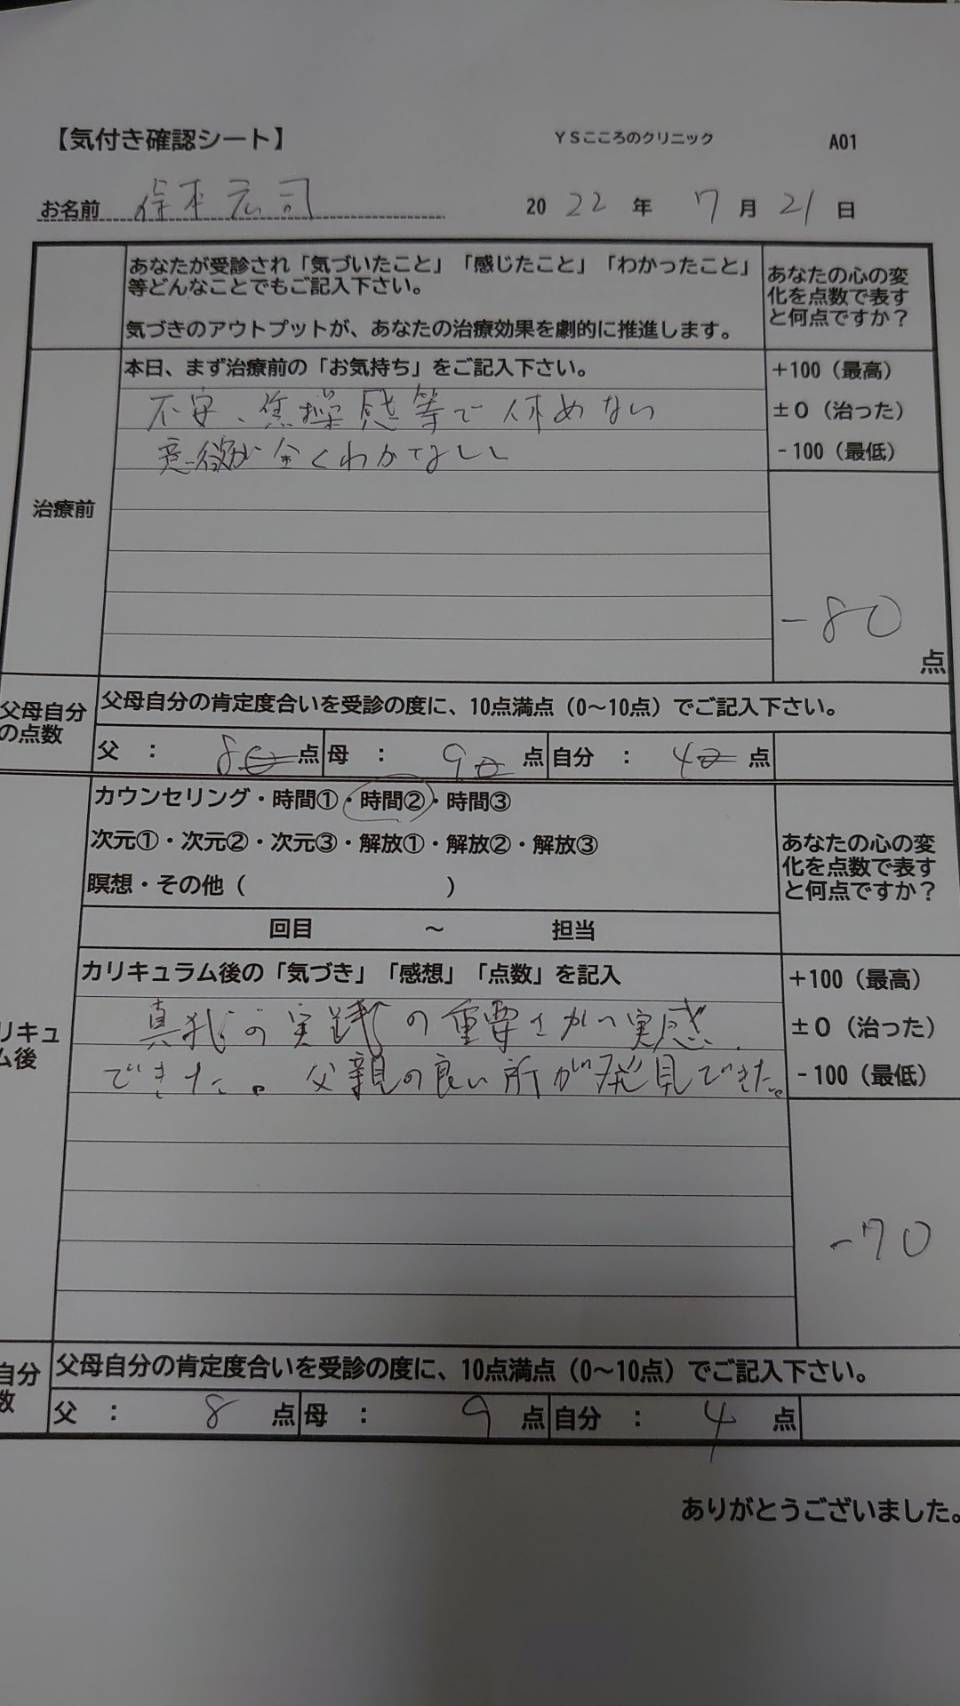 【気付き確認シート】 YSこころのクリニック A01
お名前 2022年 7月 21日
あなたが受診され「気づいたこと」「感じたこと」「わかったこと」
等どんなことでもご記入下さい。
気づきのアウトプットが、あなたの治療効果を劇的に推進します。
あなたの心の変
化を点数で表す
と何点ですか？
治療前
本日、まず治療前の「お気持ち」をご記入下さい。
不安、焦燥感等で休めない
意欲が全くわかない
+100（最高）
±0（治った）
-100（最低）
-80
点
父母自分
の点数
父母自分の肯定度合いを受診の度に、10点満点（0～10点）でご記入下さい。
父 ： 80点 母 ： 90点 自分 ： 40点
カウンセリング・時間①・時間②・時間③
次元①・次元②・次元③・解放①・解放②・解放③
瞑想・その他（ ）
回目 ～ 担当
あなたの心の変
化を点数で表す
と何点ですか？
リキュ
ム後
カリキュラム後の「気づき」「感想」「点数」を記入
真我の実践の重要さがへ実感
できた。父親の良い所が発見できた。
+100（最高）
±0（治った）
-100（最低）
-70
自分
数
父母自分の肯定度合いを受診の度に、10点満点（0～10点）でご記入下さい。
父 ： 8点 母 ： 9点 自分 ： 4点
ありがとうございました。